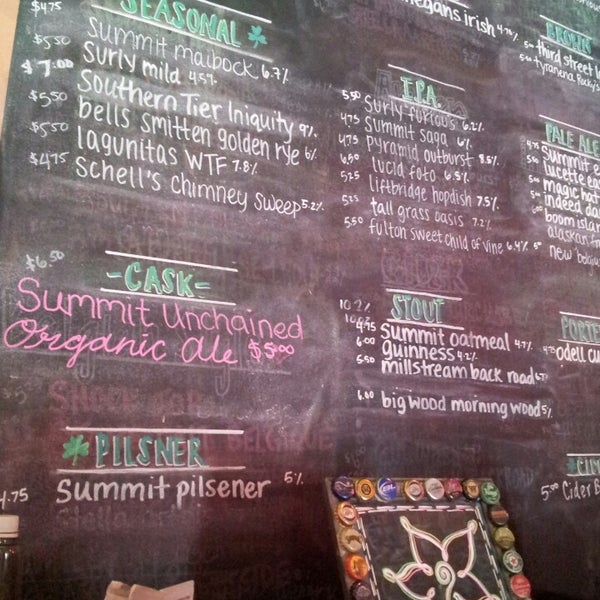 $4.75 SEASONAL
$5.50 Summit maibock 6.7%
$7.00 Surly mild 4.5%
$5.50 Southern Tier Iniquity 9%
$5.50 bells smitten golden rye 6%
$4.75 lagunitas WTF 7.8%
schell's chimney sweep 5.2%
$6.50
-CASK-
Summit Unchained
Organic ale $5.00
PILSNER
4.75 Summit pilsener 5%
irish 4.2%
I.P.A.
5.50 Surly furious 6.2%
4.75 Summit saga 6%
4.75 pyramid outburst 8.5%
6.50 lucid foto 6.5%
5.25 liftbridge hopdish 7.5%
5.25 tall grass oasis 7.2%
5.50 fulton sweet child of vine 6.4%
STOUT
10.2%
4.75 Summit oatmeal 4.7%
6.00 guinness 4.2%
5.50 millstream back road
6.00 big wood morning wood 5%
BROWN
5.00 third street
5.00 tyranena Rocky's
PALE ALE
4.75 Summit
lucette
magic hat
indeed
boom island
alaskan
5.00 new belgium
PORTER
4.75 odell
5.00 Cider